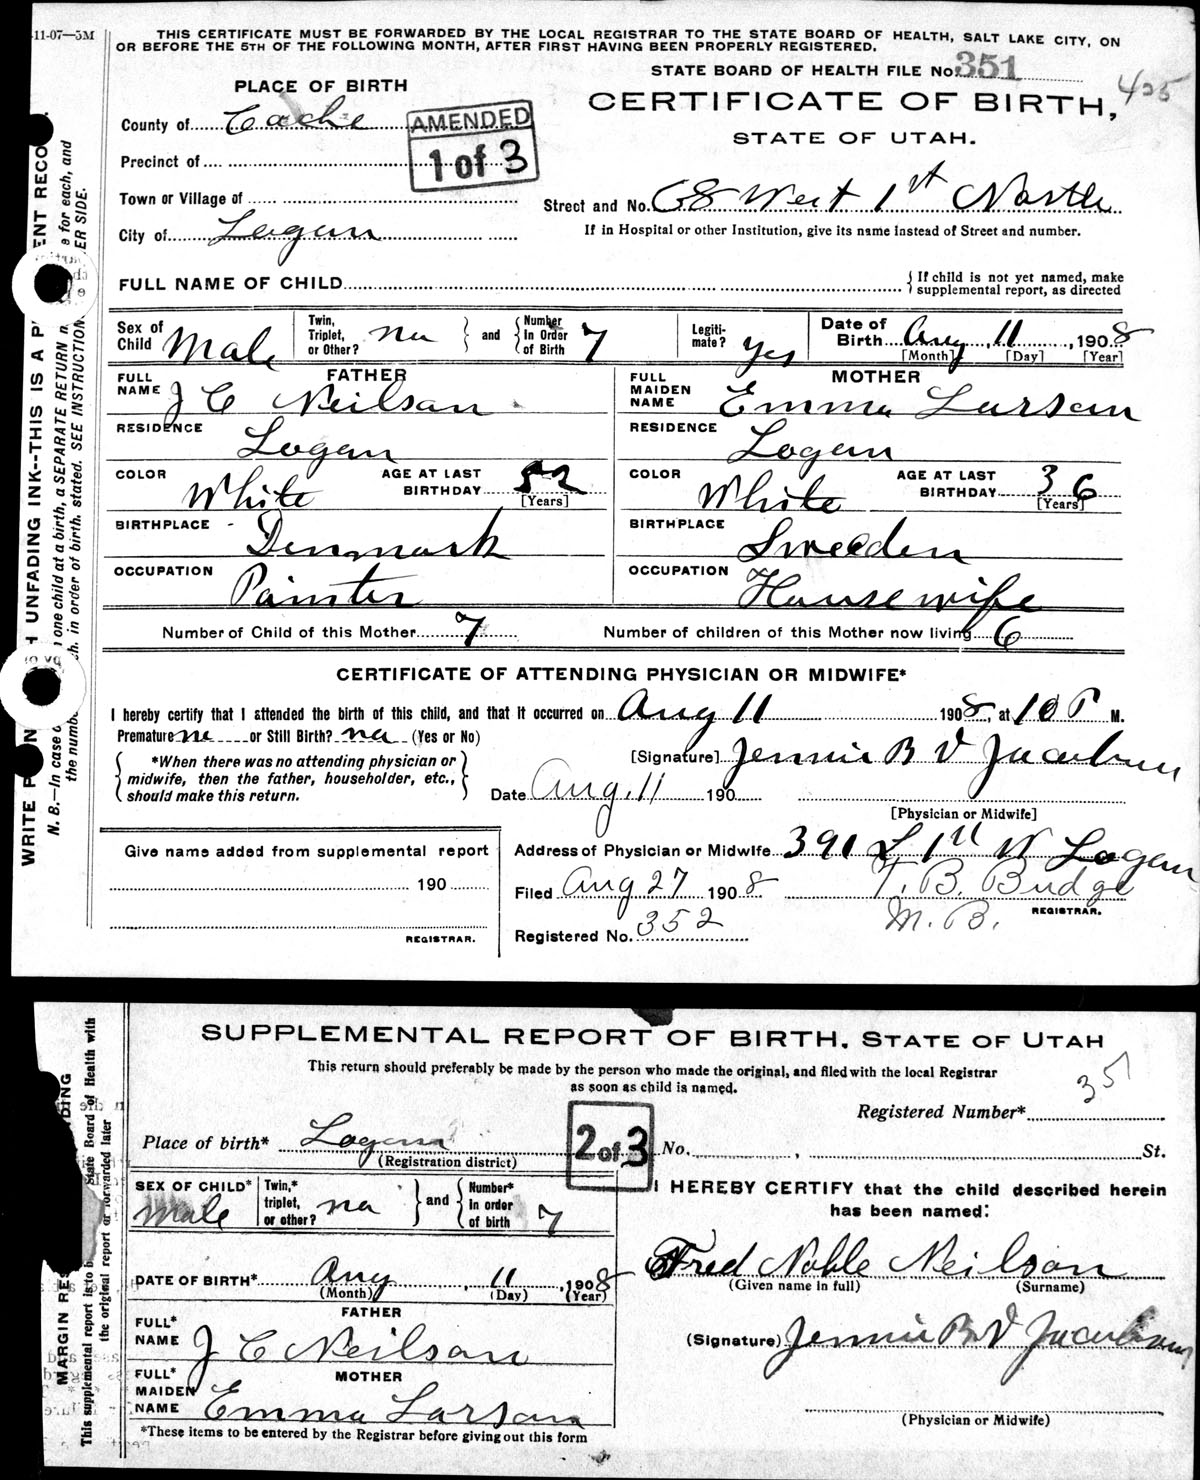 -11-07—5M
THIS CERTIFICATE MUST BE FORWARDED BY THE LOCAL REGISTRAR TO THE STATE BOARD OF HEALTH, SALT LAKE CITY, ON
OR BEFORE THE 5TH OF THE FOLLOWING MONTH, AFTER FIRST HAVING BEEN PROPERLY REGISTERED.
STATE BOARD OF HEALTH FILE No. 351
425
PLACE OF BIRTH
CERTIFICATE OF BIRTH,
STATE OF UTAH.
County of Cache
AMENDED
1 of 3
Precinct of
Town or Village of
Street and No. 68 West 1st North
City of Logan
If in Hospital or other Institution, give its name instead of Street and number.
FULL NAME OF CHILD
{ If child is not yet named, make
supplemental report, as directed
Sex of Child Male
Twin, Triplet, or Other? no } and { Number In Order of Birth 7
Legiti-mate? yes
Date of Birth Aug, 11, 1908
[Month] [Day] [Year]
FATHER
FULL NAME J C Neilson
MOTHER
FULL MAIDEN NAME Emma Larson
RESIDENCE Logan
RESIDENCE Logan
COLOR White AGE AT LAST BIRTHDAY 52 [Years]
COLOR White AGE AT LAST BIRTHDAY 36 [Years]
BIRTHPLACE Denmark
BIRTHPLACE Sweeden
OCCUPATION Painter
OCCUPATION Housewife
Number of Child of this Mother 7
Number of children of this Mother now living 6
CERTIFICATE OF ATTENDING PHYSICIAN OR MIDWIFE*
I hereby certify that I attended the birth of this child, and that it occurred on Aug 11 1908, at 10 P M.
Premature no or Still Birth? no (Yes or No)
{ *When there was no attending physician or
midwife, then the father, householder, etc.,
should make this return. }
[Signature] Jennie B V Jacobson
Date Aug. 11 190
[Physician or Midwife]
Give name added from supplemental report
190
REGISTRAR.
Address of Physician or Midwife 391 1st N Logan
Filed Aug 27 1908
T. B. Budge
M. B.
REGISTRAR.
Registered No. 352
WRITE UNFADING INK--THIS IS A
ENT RECO
N. B.—In case one child at a birth, a SEPARATE RETURN for each, and
the numb in order of birth, stated. SEE INSTRUCTION ER SIDE.
SUPPLEMENTAL REPORT OF BIRTH, STATE OF UTAH
This return should preferably be made by the person who made the original, and filed with the local Registrar
as soon as child is named.
351
Registered Number*
Place of birth* Logan
(Registration district)
2 of 3
No. , St.
SEX OF CHILD* Male
Twin,* triplet, or other? no } and { Number* In order of birth 7
I HEREBY CERTIFY that the child described herein
has been named:
DATE OF BIRTH* Aug, 11, 1908
(Month) (Day) (Year)
Fred Noble Neilson
(Given name in full) (Surname)
FATHER
FULL* NAME J C Neilson
(Signature) Jennie B V Jacobson
MOTHER
FULL* MAIDEN NAME Emma Larson
(Physician or Midwife)
*These items to be entered by the Registrar before giving out this form
MARGIN RES DING
This supplemental report is to b State Board of Health with
the original report or forwarded later